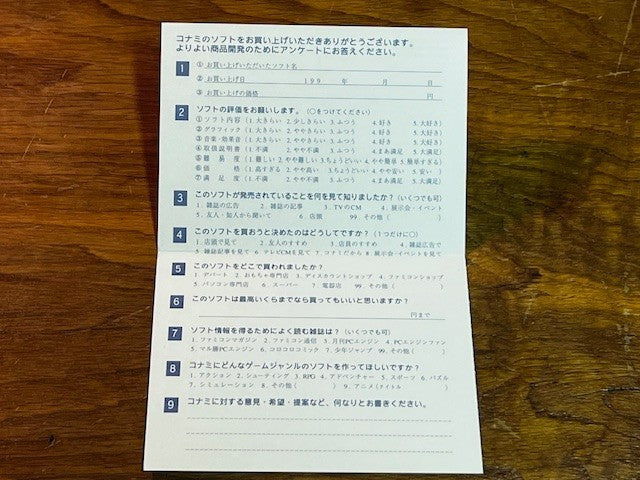 コナミのソフトをお買い上げいただきありがとうございます。
よりよい商品開発のためにアンケートにお答えください。
1 ① お買い上げいただいたソフト名
② お買い上げ日 199 年 月 日
③ お買い上げの価格 円
2 ソフトの評価をお願いします。(○をつけてください)
① ソフト内容 (1.大きらい 2.少しきらい 3.ふつう 4.好き 5.大好き)
② グラフィック (1.大きらい 2.ややきらい 3.ふつう 4.好き 5.大好き)
③ 音楽/効果音 (1.大きらい 2.ややきらい 3.ふつう 4.好き 5.大好き)
④ 取扱説明書 (1.不満 2.やや不満 3.ふつう 4.まあ満足 5.大満足)
⑤ 難易度 (1.難しい 2.やや難しい 3.ちょうどいい 4.やや簡単 5.簡単すぎる)
⑥ 価格 (1.高すぎる 2.やや高い 3.ちょうどいい 4.やや安い 5.安い)
⑦ 満足度 (1.不満 2.やや不満 3.ふつう 4.まあ満足 5.大満足)
3 このソフトが発売されていることを何を見て知りましたか?(いくつでも可)
1.雑誌の広告 2.雑誌の記事 3.TVのCM 4.展示会・イベント
5.友人・知人から聞いて 6.店頭 99.その他( )
4 このソフトを買おうと決めたのはどうしてですか?(1つだけに○)
1.店頭で見て 2.友人のすすめ 3.店員のすすめ 4.雑誌広告で
5.雑誌記事を見て 6.テレビCMを見て 7.コナミだから 8.展示会・イベントを見て
5 このソフトをどこで買われましたか?
1.デパート 2.おもちゃ専門店 3.ディスカウントショップ 4.ファミコンショップ
5.パソコン専門店 6.スーパー 7.電器店 99.その他( )
6 このソフトは最高いくらまでなら買ってもいいと思いますか?
円まで
7 ソフト情報を得るためによく読む雑誌は?(いくつでも可)
1.ファミコンマガジン 2.ファミコン通信 3.月刊PCエンジン 4.PCエンジンファン
5.マル勝PCエンジン 6.コロコロコミック 7.少年ジャンプ 99.その他( )
8 コナミにどんなゲームジャンルのソフトを作ってほしいですか?
1.アクション 2.シューティング 3.RPG 4.アドベンチャー 5.スポーツ 6.パズル
7.シミュレーション 8.その他( ) 9.アニメ(タイトル )
9 コナミに対する意見・希望・提案など、何なりとお書きください。